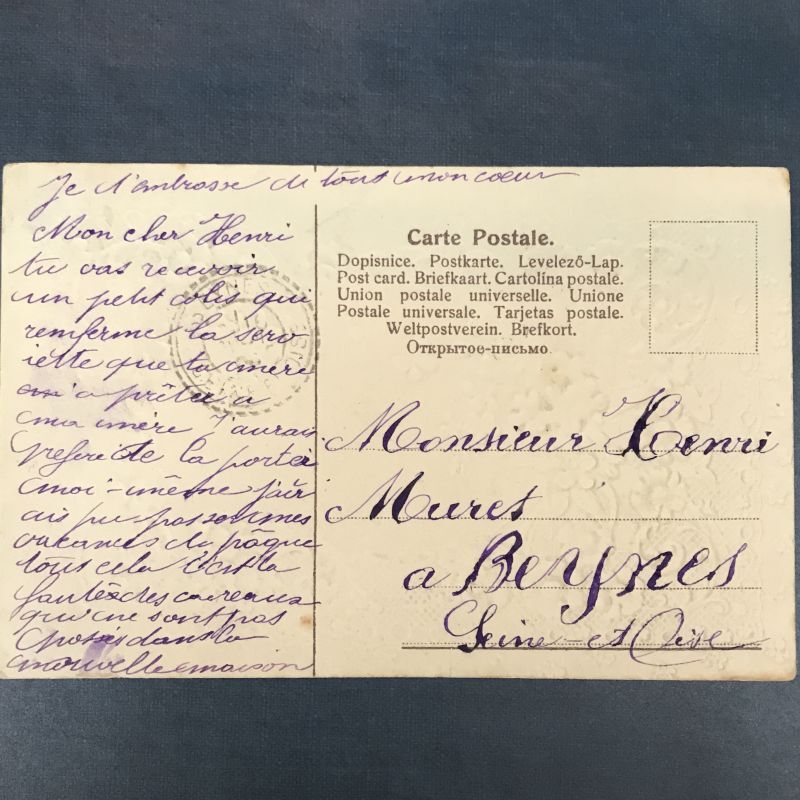 Je t'embrasse de tout mon coeur
Mon cher Henri
tu vas recevoir
un petit colis qui
renferme la serv
iette que ta mère
m'a prêtée a
ma mère J'aurais
préféré te la porter
moi-même j'aur
ais pu passer mes
vacances de pâque
tout cela c'est la
faute des carreaux
qui ne sont pas
posés dans la
nouvelle maison
Carte Postale.
Dopisnice. Postkarte. Levelező-Lap.
Post card. Briefkaart. Cartolina postale.
Union postale universelle. Unione
Postale universale. Tarjetas postale.
Weltpostverein. Brefkort.
Открытое-письмо
Monsieur Henri
Muret
a Beynes
Seine-et-Oise